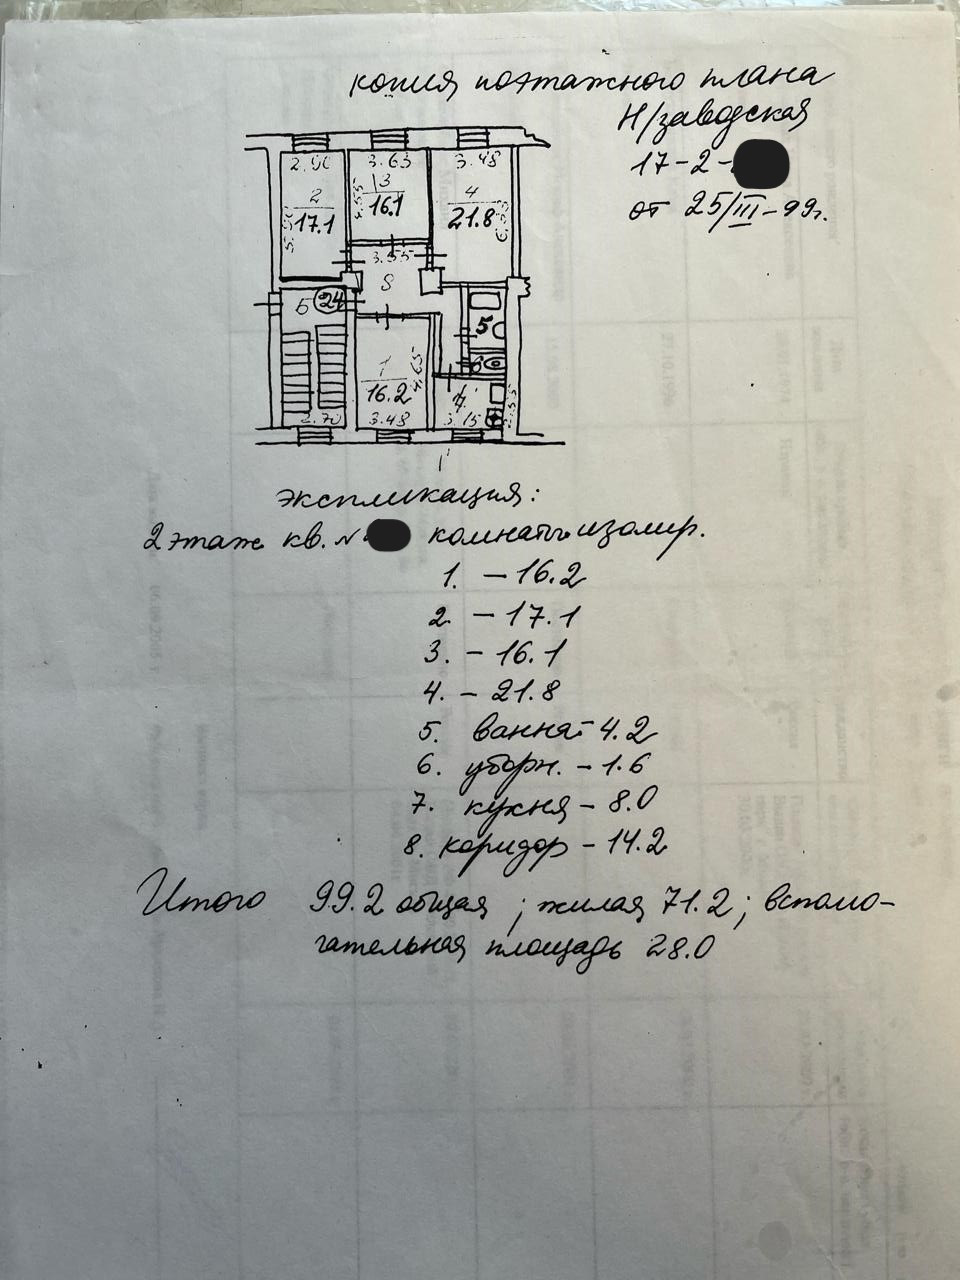 копия поэтажного плана
Н/заводская
17-2-
от 25/III-99г.
3.63 3.48
2 3 4
17.1 16.1 21.8
3.55
8
Б 24
5
1 4.65
16.2
2.70 3.48 3.15
экспликация:
2 этаж кв. N комнаты изолир.
1. - 16.2
2 - 17.1
3. - 16.1
4. - 21.8
5. ванна - 4.2
6. уборн. - 1.6
7. кухня - 8.0
8. коридор - 14.2
Итого 99.2 общая ; жилая 71.2 ; вспомо-
гательная площадь 28.0